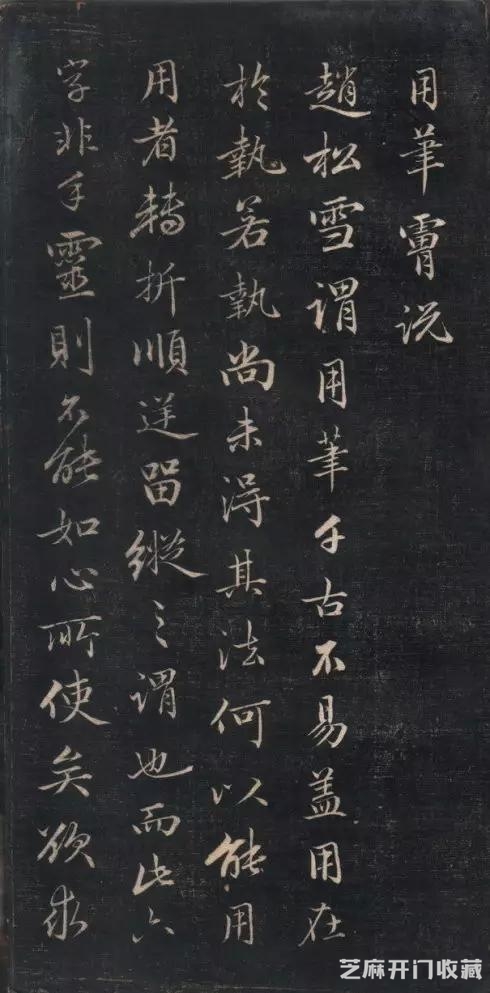 用筆𩆜說
趙松雪謂用筆千古不易盖用在
於執若執尚未得其法何以能用
用者轉折順逆留縱之謂也而此六
字非手靈則不能如心所使矣欲求
芝麻开门收藏